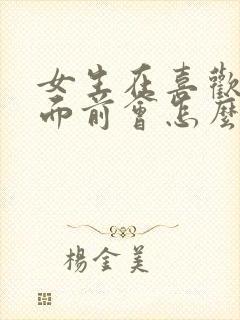 女生在喜歡
面前會怎麼
楊金美